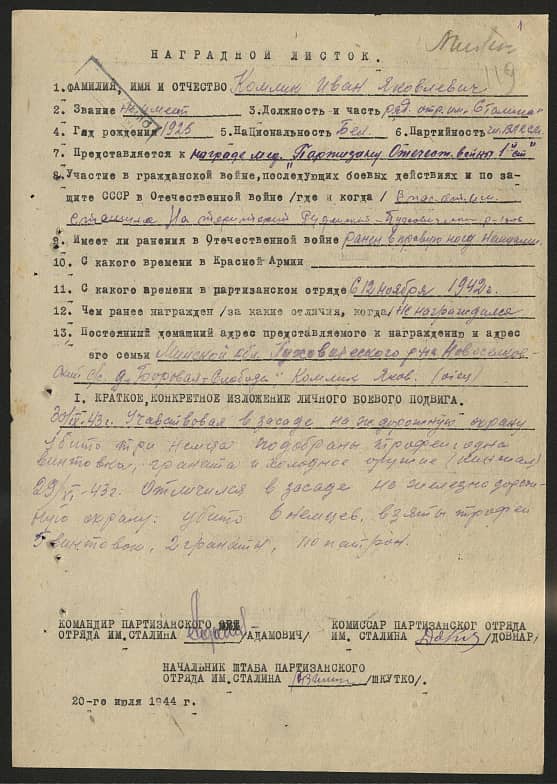 1
119
НАГРАДНОЙ ЛИСТОК.
1. ФАМИЛИЯ, ИМЯ И ОТЧЕСТВО Комлик Иван Яковлевич
2. Звание не имеет 3. Должность и часть ряд. отр. им. Сталина
4. Год рождения 1925 5. Национальность Бел. 6. Партийность чл. ВЛКСМ
7. Представляется к награде мед. "Партизану Отечест. войны 1" ст"
8. Участие в гражданской войне, последующих боевых действиях и по за-
щите СССР в Отечественной войне /где и когда/ В
Сталина На
9. Имеет ли ранения в Отечественной войне ранен в правую ногу
10. С какого времени в Красной Армии
11. С какого времени в партизанском отряде С 12 ноября 1942г.
12. Чем ранее награжден /за какие отличия, когда/ Не награждался
13. Постоянный домашний адрес представляемого к награждению и адрес
его семьи Минской обл. Пуховического р-на Новосёлков-
ский с/с д. "Боровая-Слобода" Комлик Яков. (отец)
I. КРАТКОЕ, КОНКРЕТНОЕ ИЗЛОЖЕНИЕ ЛИЧНОГО БОЕВОГО ПОДВИГА.
43г. Учавствовал в засаде на охрану
убито три немца подобраны трофеи одна
винтовка, граната и холодное оружие (кинжал)
29/VI-43г. Отличился в засаде на железнодорож-
ную охрану: убито 6 немцев, взяты трофеи
5 винтовок, 2 гранаты, 110 патрон.
КОМАНДИР ПАРТИЗАНСКОГО
ОТРЯДА ИМ. СТАЛИНА /АДАМОВИЧ/
КОМИССАР ПАРТИЗАНСКОГО ОТРЯДА
ИМ. СТАЛИНА /ДОВНАР/
НАЧАЛЬНИК ШТАБА ПАРТИЗАНСКОГО
ОТРЯДА ИМ. СТАЛИНА /ШКУТКО/.
20-го июля 1944 г.